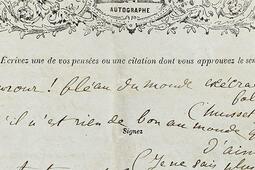 AUTOGRAPHE
Ecrivez une de vos pensées ou une citation dont vous approuvez le sen
! fléau du monde exécra
fol
(Musset
qu'il n'est rien de bon au monde q
Signez
d'aim
(Je ne sais plus